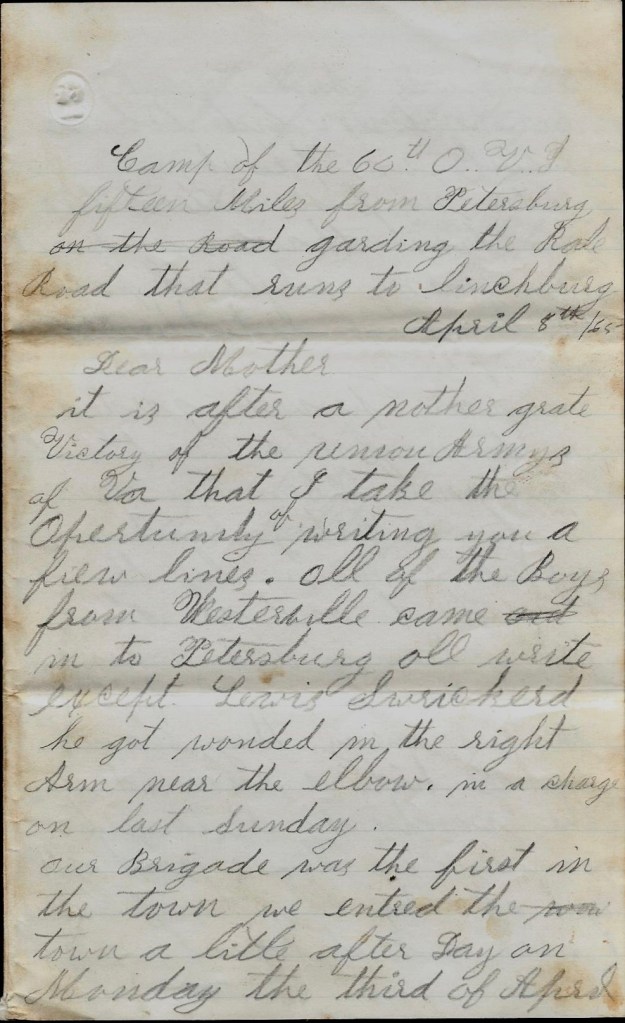 Camp of the 60th O.. V.. I
fifteen Miles from Petersburg
on the Road garding the Rale
Road that runs to linchburg
April 8th /65
Dear Mother
it is after a nother grate
Victory of the union Armys
of Va that I take the
Opertunity of writing you a
fiew lines. all of the Boys
from Westerville came out
in to Petersburg all write
except. Lewis Swrickerd
he got wonded in the right
Arm near the elbow. in a charge
on last Sunday.
our Brigade was the first in
the town we entred the
town a litle after Day on
Monday the third of April